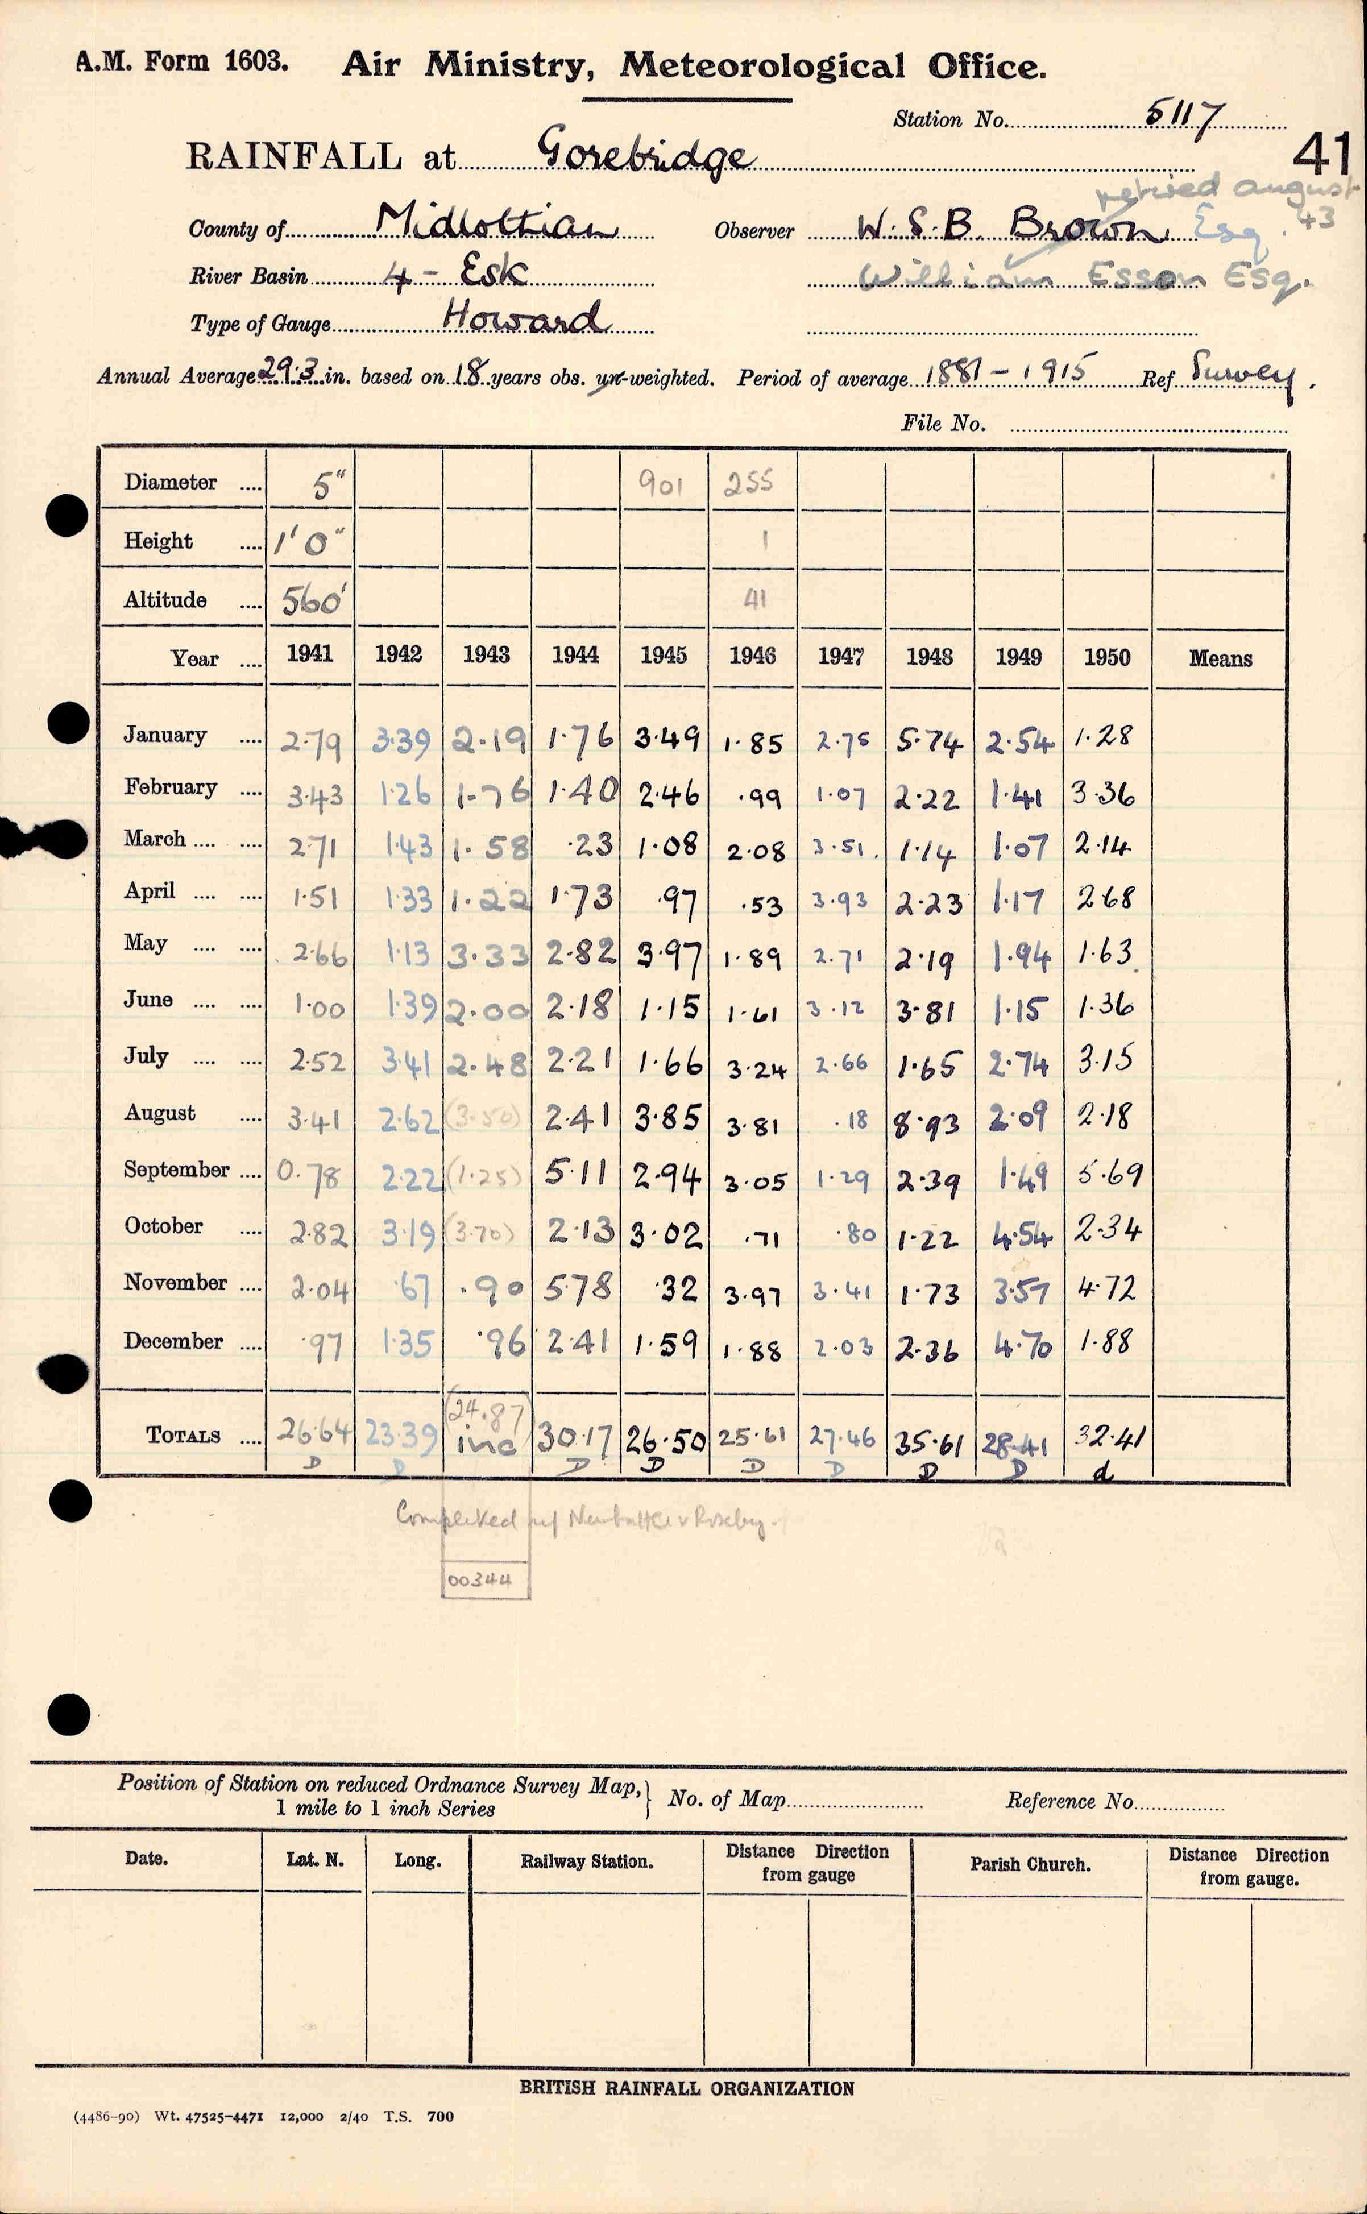 A.M. Form 1603. Air Ministry, Meteorological Office.
Station No. 5117
41
RAINFALL at Gorebridge
retired august 43
County of Midlothian Observer W. S. B. Brown Esq.
River Basin 4 - Esk William Esson Esq.
Type of Gauge Howard
Annual Average 29.3 in. based on 18 years obs. un-weighted. Period of average 1881 - 1915 Ref Survey.
File No.
Diameter .... 5" 901 255
Height .... 1' 0" 1
Altitude .... 560' 41
Year .... 1941 1942 1943 1944 1945 1946 1947 1948 1949 1950 Means
January .... 2.79 3.39 2.19 1.76 3.49 1.85 2.75 5.74 2.54 1.28
February .... 3.43 1.26 1.76 1.40 2.46 .99 1.07 2.22 1.41 3.36
March .... .... 2.71 1.43 1.58 .23 1.08 2.08 3.51 1.14 1.07 2.14
April .... .... 1.51 1.33 1.22 1.73 .97 .53 3.93 2.23 1.17 2.68
May .... .... 2.66 1.13 3.33 2.82 3.97 1.89 2.71 2.19 1.94 1.63
June .... .... 1.00 1.39 2.00 2.18 1.15 1.61 3.12 3.81 1.15 1.36
July .... .... 2.52 3.41 2.48 2.21 1.66 3.24 2.66 1.65 2.74 3.15
August .... 3.41 2.62 (3.50) 2.41 3.85 3.81 .18 8.93 2.09 2.18
September .... 0.78 2.22 (1.25) 5.11 2.94 3.05 1.29 2.39 1.49 5.69
October .... 2.82 3.19 (3.70) 2.13 3.02 .71 .80 1.22 4.54 2.34
November .... 2.04 .67 .90 5.78 .32 3.97 3.41 1.73 3.57 4.72
December .... .97 1.35 .96 2.41 1.59 1.88 2.03 2.36 4.70 1.88
(24.87)
TOTALS .... 26.64 23.39 inc 30.17 26.50 25.61 27.46 35.61 28.41 32.41
D D D D D D D D d
Completed w/ Newbattle & Roseby.
00344
Position of Station on reduced Ordnance Survey Map, } No. of Map Reference No.
1 mile to 1 inch Series
Date. Lat. N. Long. Railway Station. Distance Direction from gauge Parish Church. Distance Direction from gauge.
BRITISH RAINFALL ORGANIZATION
(4486-90) Wt. 47525-4471 12,000 2/40 T.S. 700